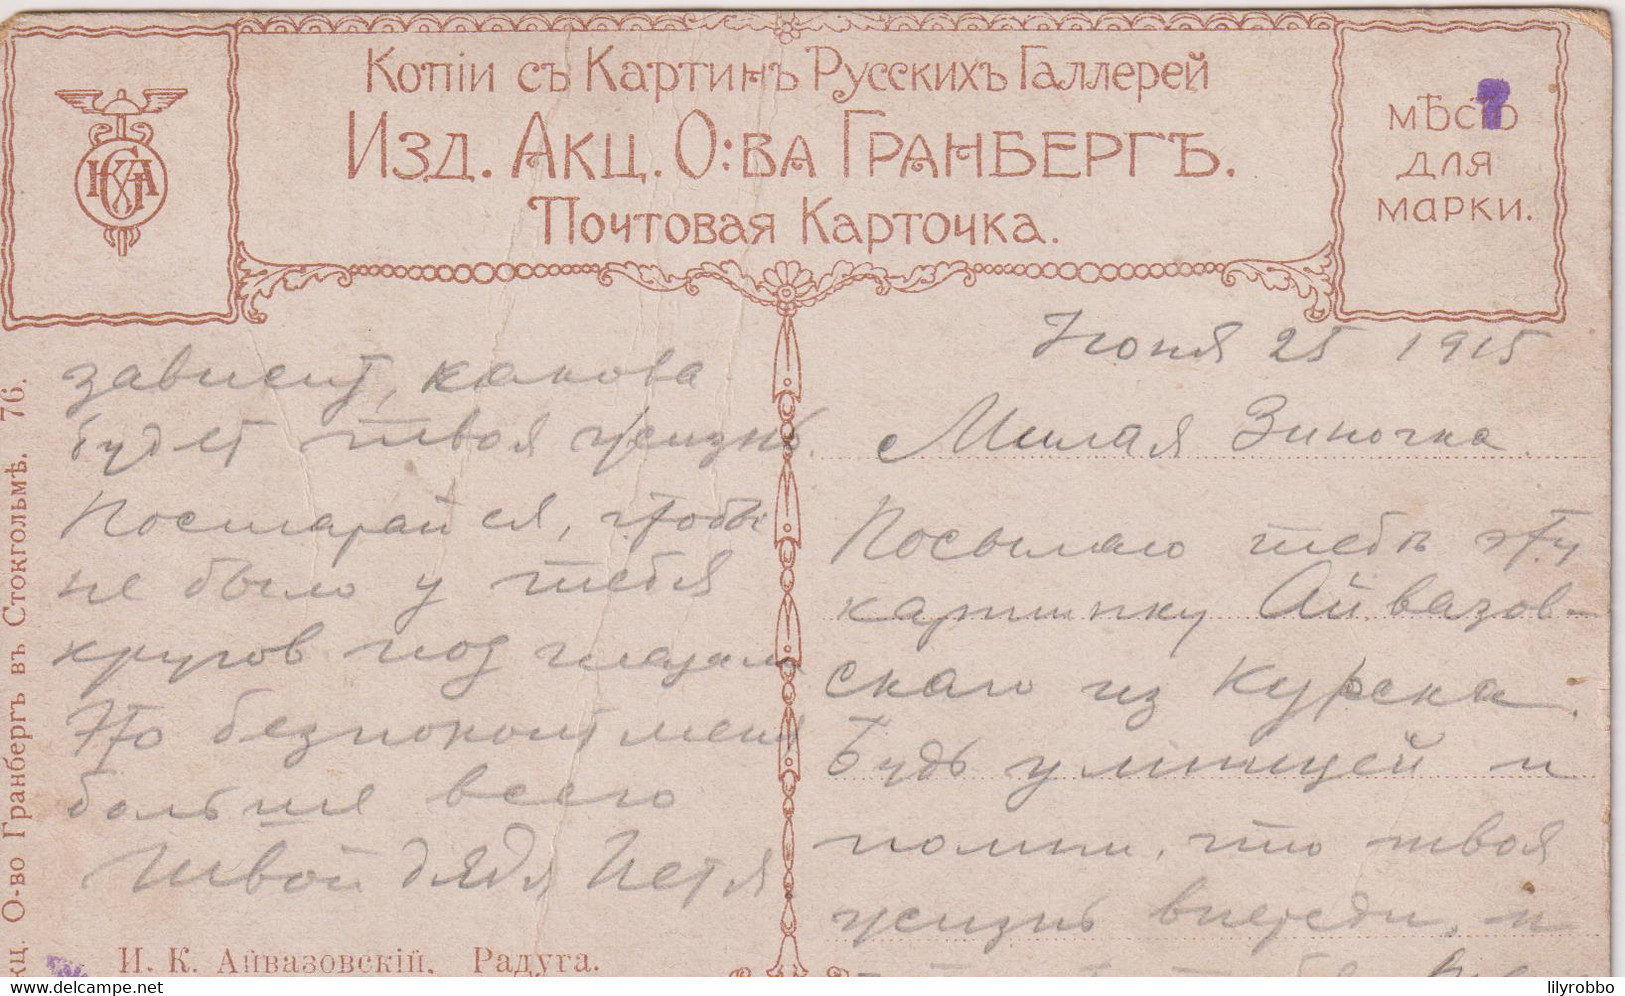 Копіи съ Картинъ Русскихъ Галлерей
Изд. Акц. О:ва Гранбергъ.
Почтовая Карточка.
НКГА
мѣсто
для
марки.
7
Июня 25 1915
Милая Зиночка.
Посылаю тебѣ эту
картинку Айвазов-
скаго из Курска.
Будь умницей и
помни, что твоя
жизнь впереди, и
зависит, какова
будет твоя жизнь.
Постарайся, чтобы
не было у тебя
кругов под глазами
Это безпокоит меня
больше всего
Твой дядя Петя
И. К. Айвазовскій. Радуга.
кц. О-во Гранбергъ въ Стокгольмѣ. 76.
lilyrobbo